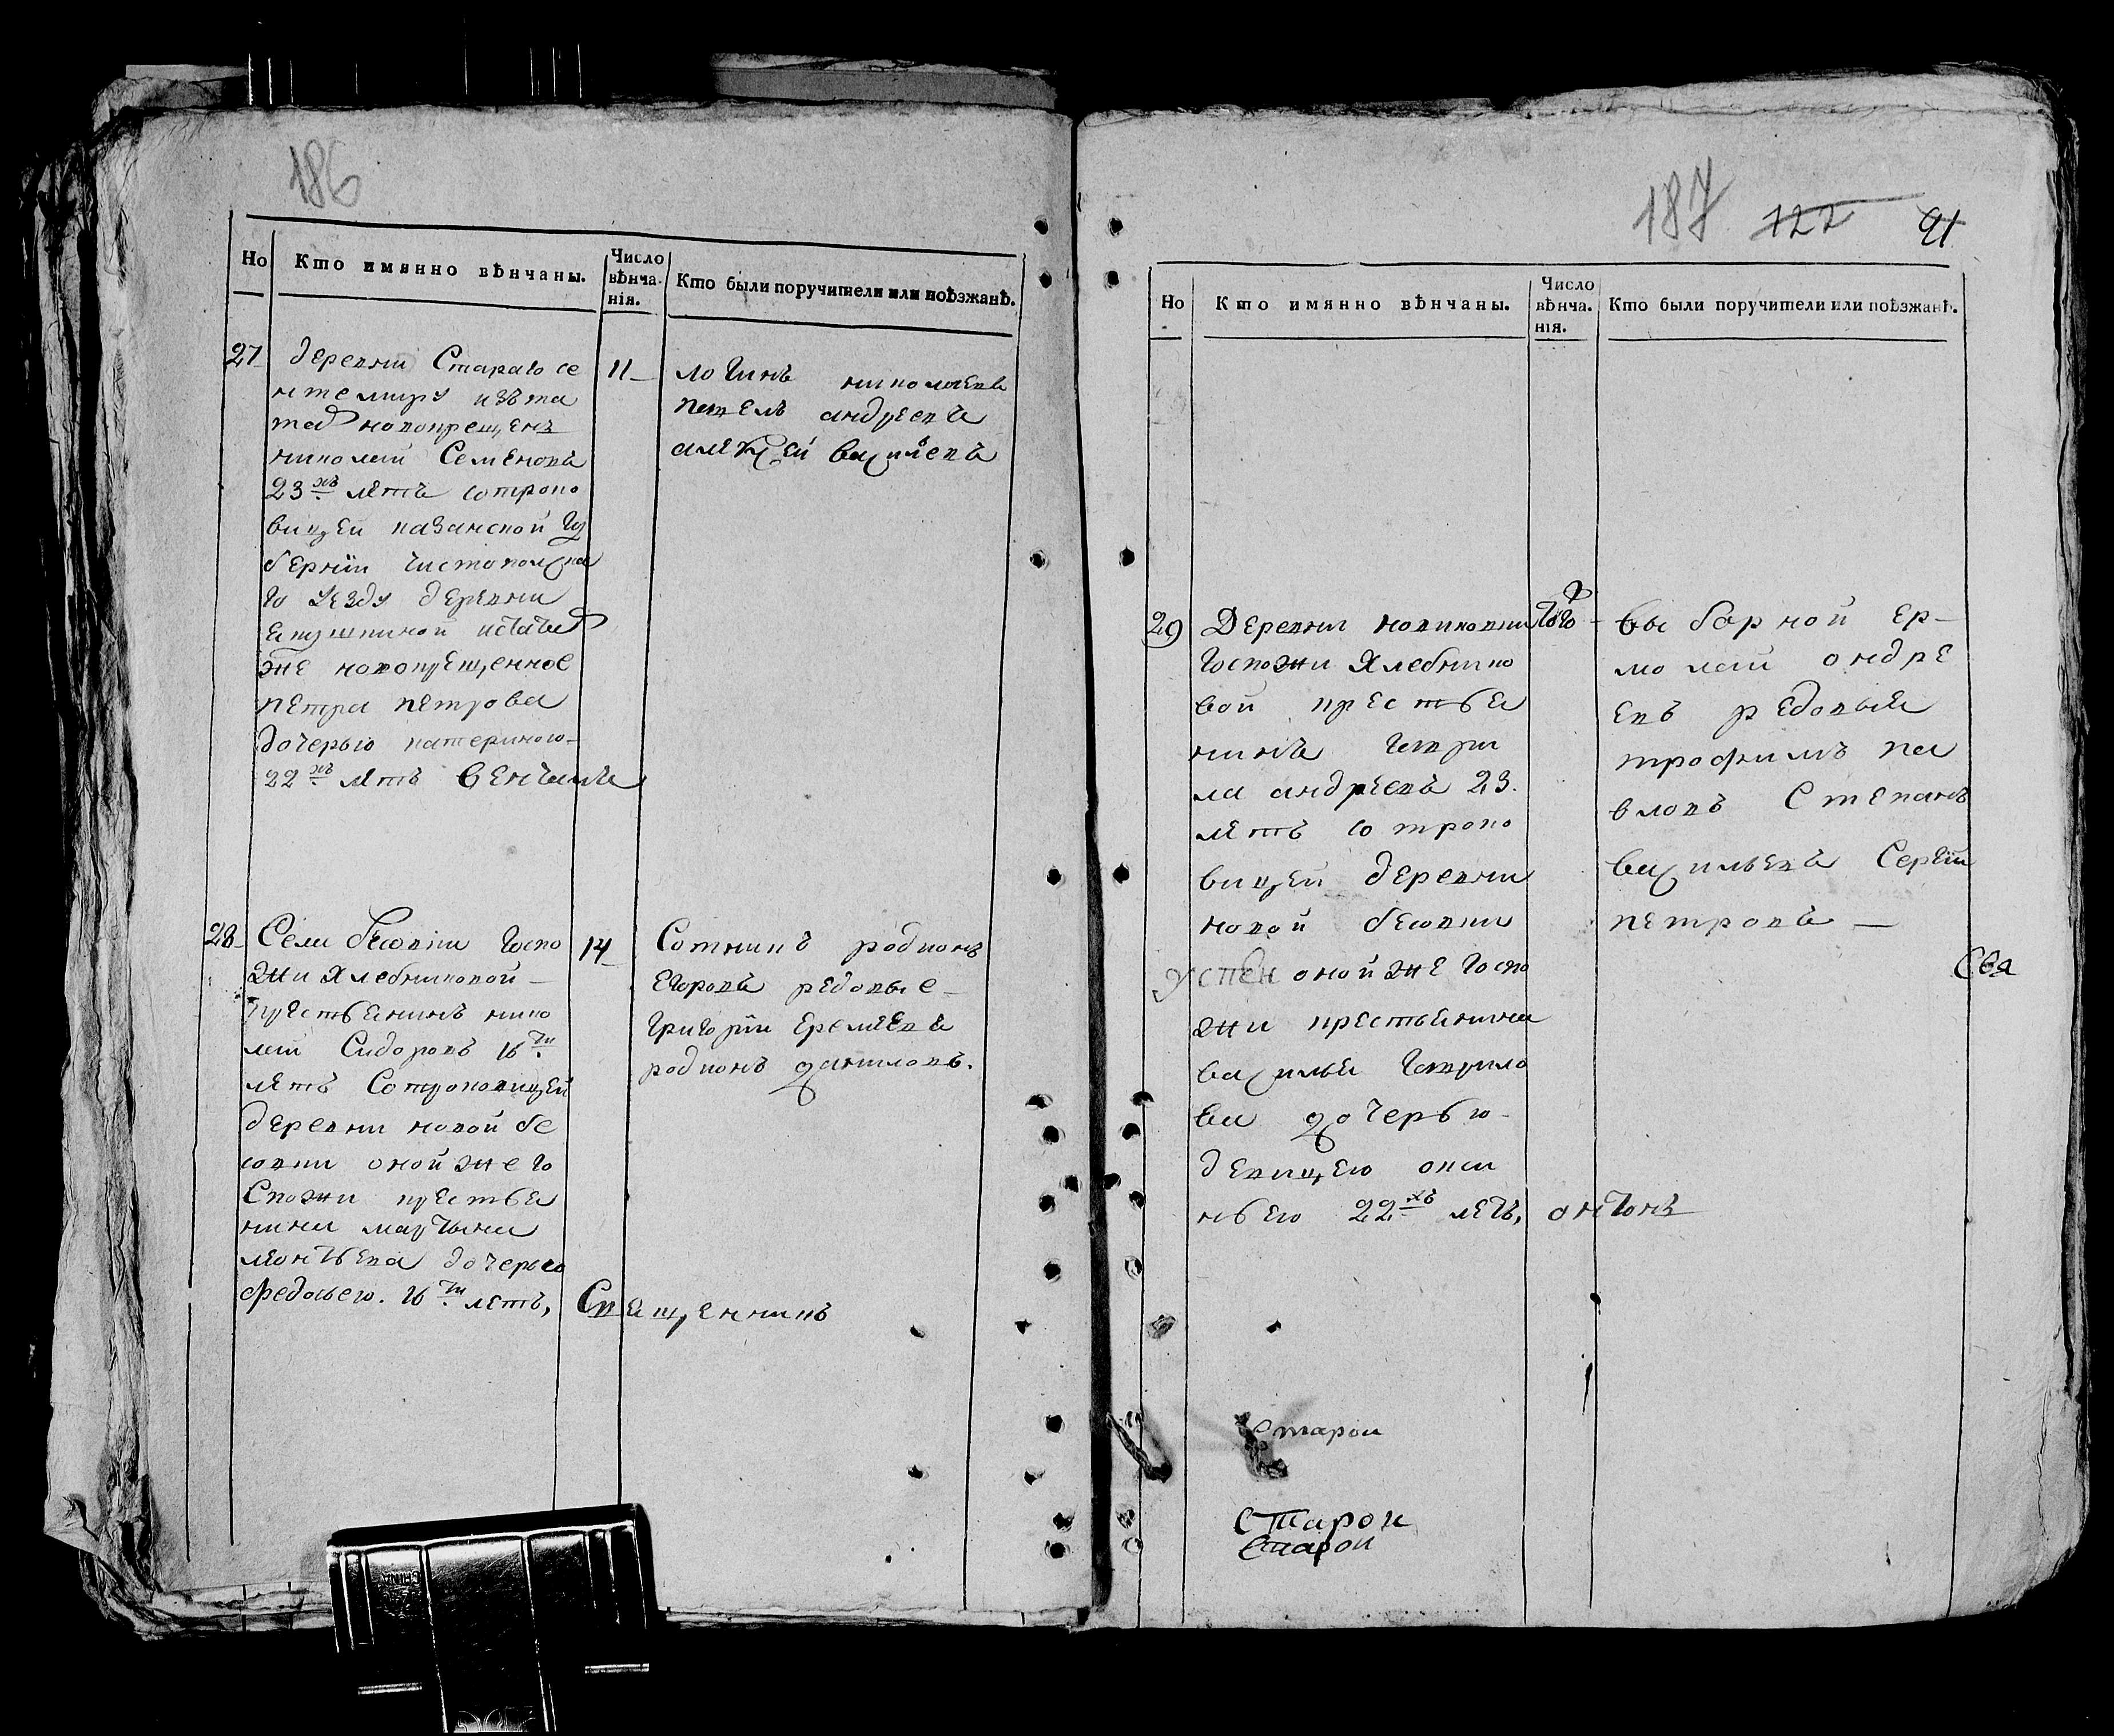 186
Но
Кто имянно вѣнчаны.
Число
вѣнча-
нія.
Кто были поручители или поѣзжанѣ.
27
деревни Стараго се
нтемиру изъ та
тар новокрещенъ
николай Семеновъ
23хъ летъ сотроко
вицей казанской гу
берніи чистополска
го уезду деревни
же новокрещенное
петра петрова
дочерью катериною
22хъ летъ венчанъ
11
логинъ николаевъ
павелъ андреевъ
алексей василевъ
28
Села бесовки госпо
жи Хлебниковой
крестьянинъ нико
лай Сидоровъ 16ти
летъ Сотроковицей
деревни новой бе
совки оной же го
Спожи крестья
нина мартына
леонтьева дочерью
федосьею. 16ти летъ,
14
Сотникъ родионъ
егоровъ редовые
григорий еремеевъ
родионъ даниловъ.
Священникъ
187 122 91
Но
Кто имянно вѣнчаны.
Число
вѣнча.
нія.
Кто были поручители или поѣзжанѣ.
29
Деревни новиковки
госпожи Хлебнико
вой крестья
нинъ гаври
ла андреевъ 23.
летъ со троко
вицей деревни
новой бесовки
успен оной же госпо
жи крестьянина
василья гаврило
ва дочерью
девицею окси
ньею 22хъ летъ,
того
выборной ер-
молай андре
евъ редовыя
трофимъ па
вловъ Степанъ
васильевъ Сергеи
петровъ
Свя
антонъ
Старои
Старои
Старои